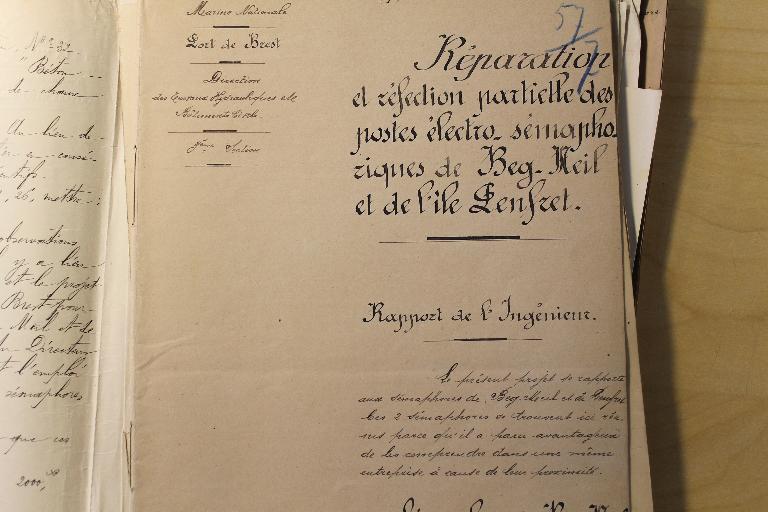 Marine Nationale
Port de Brest
Direction
des Travaux Hydrauliques et
Bâtiments Civils.
Section
57
Réparation
et réfection partielle des
postes électro-sémapho
riques de Beg-Meil
et de l'île Penfret.
Rapport de l'Ingénieur.
Le présent projet se rapporte
aux sémaphores de Beg-Meil et de Penfret
Ces 2 sémaphores se trouvent ici réu
nis parce qu'il a paru avantageux
de les comprendre dans une même
entreprise à cause de leur proximité.
Béton
de chaux
Au lieu de
26, mettre:
observations
y a lieu
et le projet
Brest pour
Meil et de
Directeur
l'emploi
sémaphores
que ces
2000,00